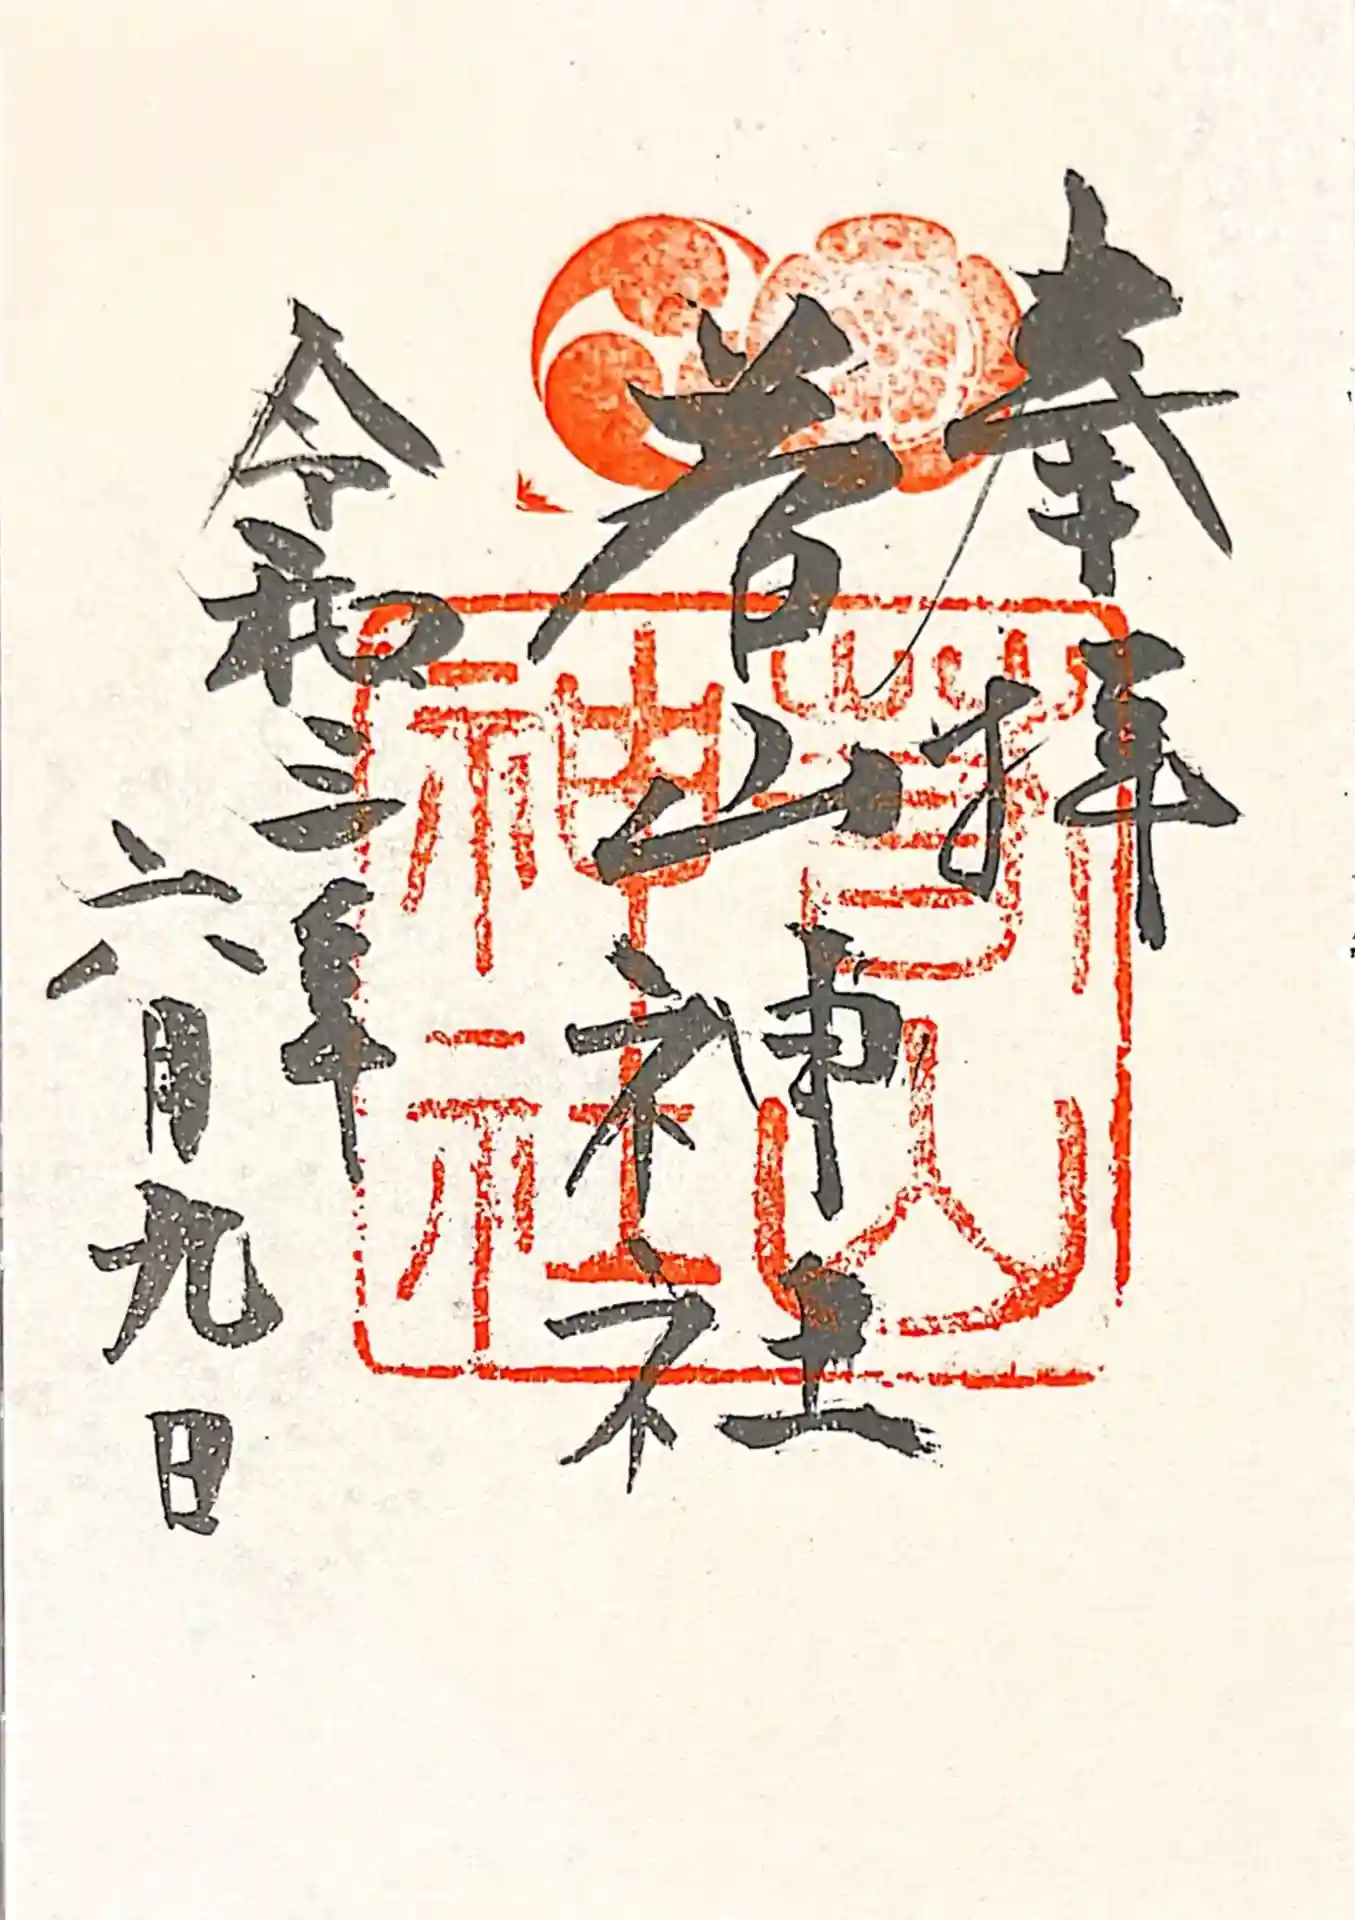 奉拝
若山神社
若山神社
令和三年
六月九日